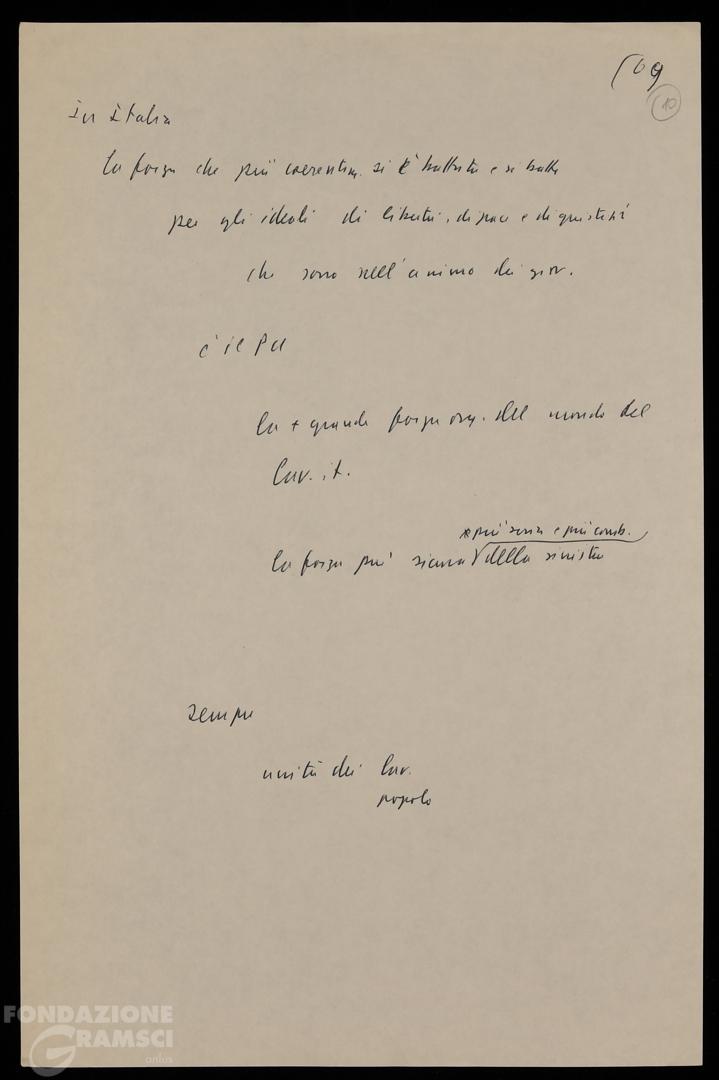 109
10
In Italia
la forza che più coerentem. si è battuta e si batte
per gli ideali di libertà, di pace e di giustizia
che sono nell'animo dei giov.
è il PCI
la + grande forza org. del mondo del
lav. it.
più seria e più comb.
la forza più sicura della sinistra
sempre
unità dei lav.
popolo
FONDAZIONE
GRAMSCI
onlus